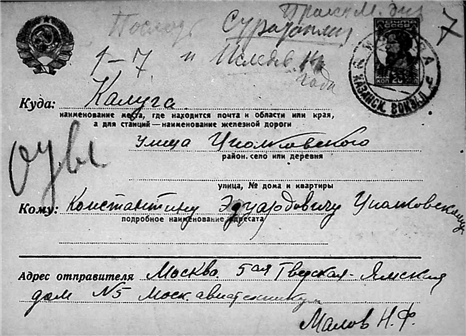 1-7 и
года
7
МОСКВА
КАЗАНСК. ВОКЗАЛ
Куда: Калуга.
наименование места, где находится почта и области или края,
а для станций—наименование железной дороги
Улица Циолковского
район, село или деревня
улица, № дома и квартиры
Кому: Константину Эдуардовичу Циолковскому
подробное наименование адресата
Адрес отправителя Москва 5ая Тверская-Ямская
дом №5 Моск. авиатехникум
Малов Н.Ф.